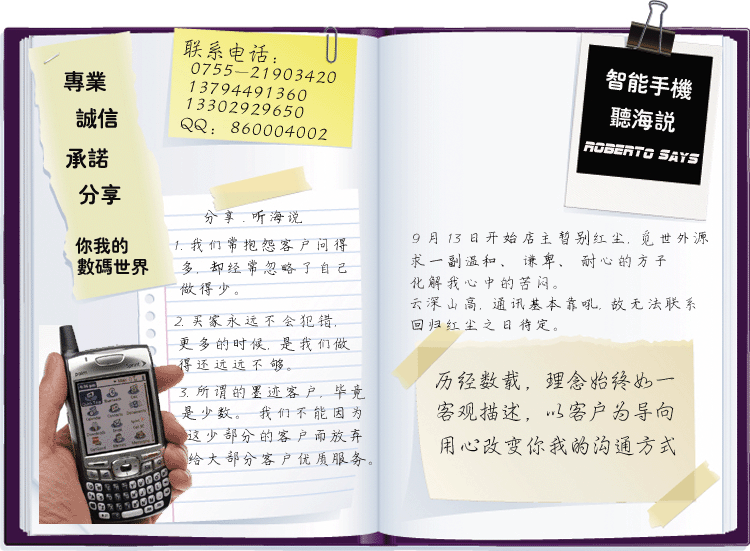 專業
誠信
承諾
分享
你我的
數碼世界
联系电话：
0755—21903420
13794491360
13302929650
QQ：860004002
分享.听海说
1.我们常抱怨客户问得
多，却经常忽略了自己
做得少。
2.买家永远不会犯错，
更多的时候，是我们做
得还远远不够。
3.所谓的墨迹客户，毕竟
是少数。 我们不能因为
这少部分的客户而放弃
给大部分客户优质服务。
智能手機
聽海説
ROBERTO SAYS
9月13日开始店主暂别红尘，觅世外源
求一副温和、 谦卑、 耐心的方子
化解我心中的苦闷。
云深山高，通讯基本靠吼，故无法联系
回归红尘之日待定。
历经数载，理念始终如一
客观描述，以客户为导向
用心改变你我的沟通方式